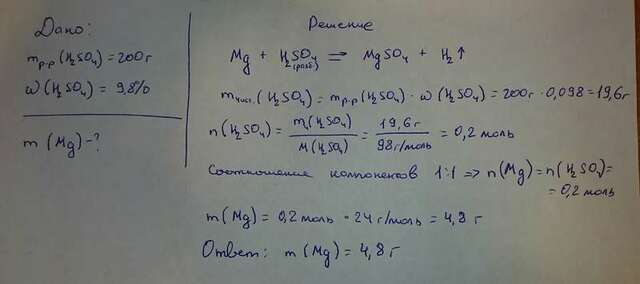 Дано:
m р-р (H₂SO₄) = 200 г
ω (H₂SO₄) = 9,8%
m (Mg) - ?
Решение
Mg + H₂SO₄ = MgSO₄ + H₂↑
(разб)
m чист. (H₂SO₄) = m р-р (H₂SO₄) · ω (H₂SO₄) = 200 г · 0,098 = 19,6 г
n (H₂SO₄) = m (H₂SO₄) / M (H₂SO₄) = 19,6 г / 98 г/моль = 0,2 моль
Соотношение компонентов 1:1 => n (Mg) = n (H₂SO₄) =
= 0,2 моль
m (Mg) = 0,2 моль · 24 г/моль = 4,8 г
Ответ: m (Mg) = 4,8 г